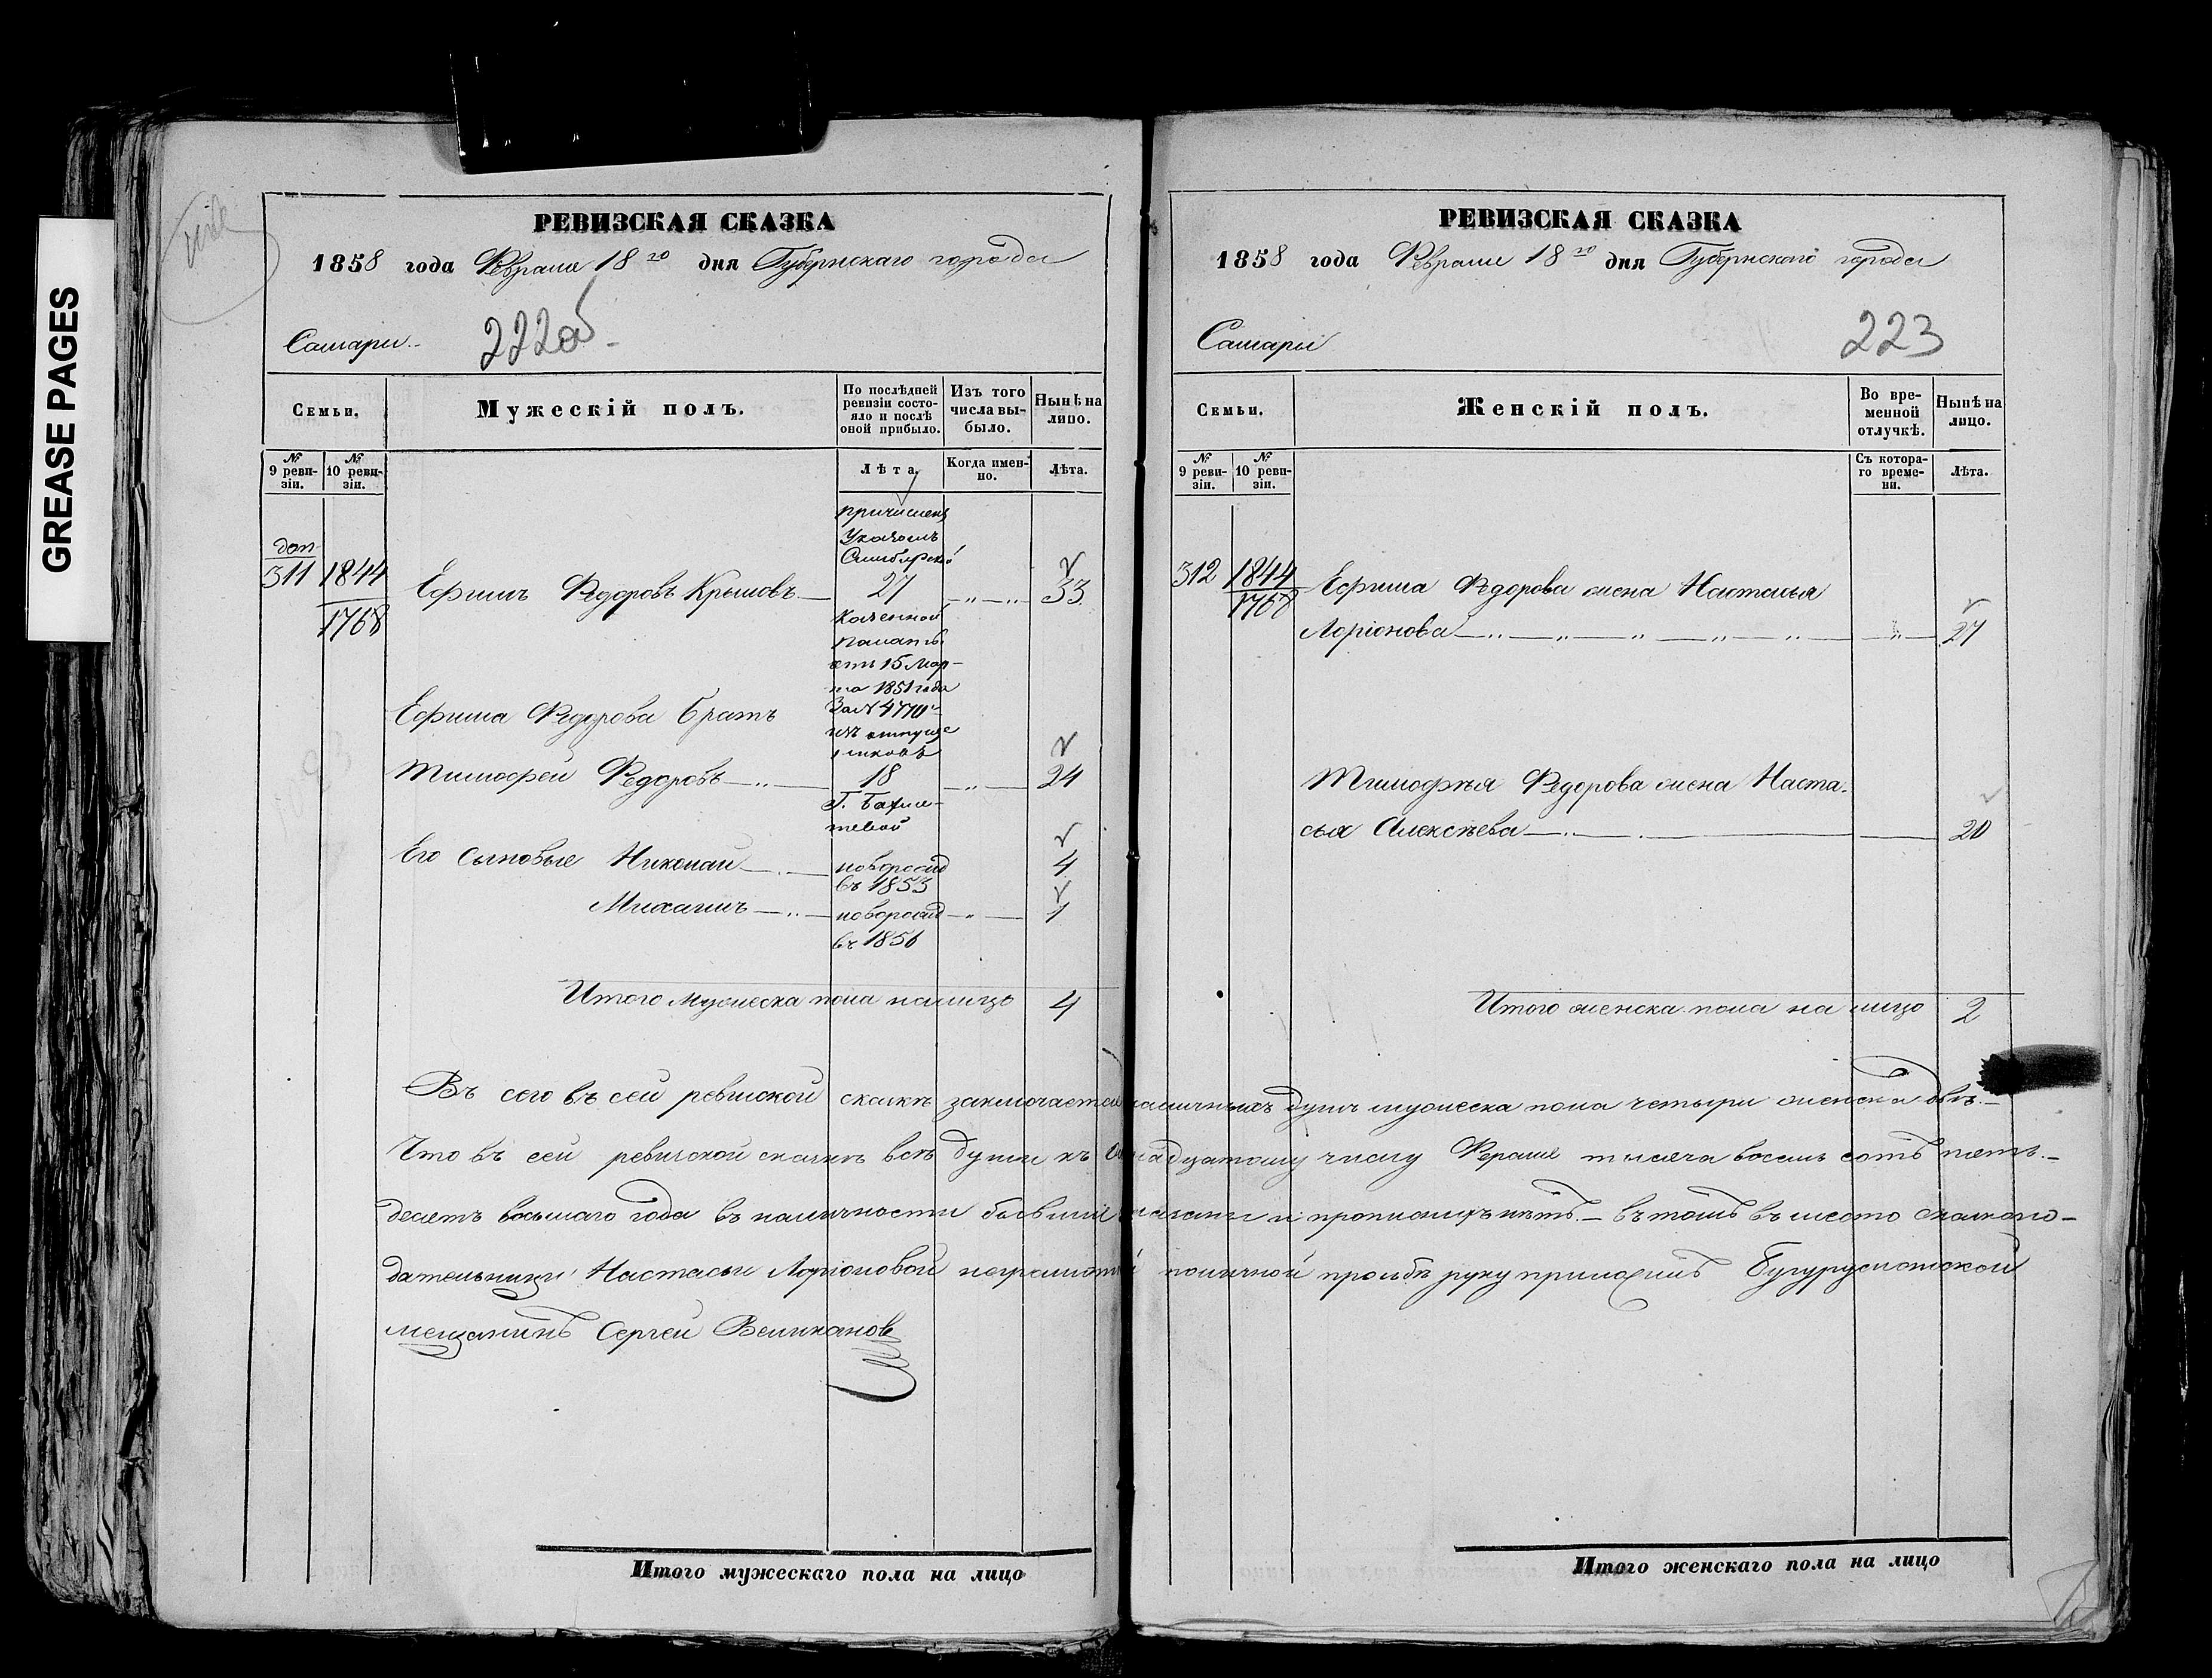 GREASE PAGES
РЕВИЗСКАЯ СКАЗКА
1858 года Февраля 18го дня Губернскаго города
Самары. 222об
Семьи. Мужескій полъ. По послѣдней ревизіи состояло и послѣ оной прибыло. Изъ того числа выбыло. Нынѣ на лицо.
№ 9 ревизіи. № 10 ревизіи. Лѣта. Когда именно. Лѣта.
причисленъ
Указомъ
доп Симбирской
311 1844 Ефимъ Федоровъ Крымовъ 27 33
1768 Казенной
Палаты
отъ 15 Мар-
та 1851 года
Ефима Федорова братъ За № 4770
изъ отпуще
нниковъ
Тимофей Федоровъ 18 24
Г. Бахме-
тевой
Его Сыновья Николай новорожд 4
въ 1853
Михаилъ новорожд 1
въ 1856
Итого мужеска пола на лицо 4
РЕВИЗСКАЯ СКАЗКА
1858 года Февраля 18го дня Губернскаго города
Самары 223
Семьи. Женскій полъ. Во временной отлучкѣ. Нынѣ на лицо.
№ 9 ревизіи. № 10 ревизіи. Съ котораго времени. Лѣта.
312 1844 Ефима Федорова жена Настасья
1768 Ларіонова 27
Тимофѣя Федорова жена Наста-
сья Алексѣева 20
Итого женска пола на лицо 2
въ сей ревиской скаскѣ заключается наличныхъ душъ мужеска пола четыри женска двѣ.
Что въ сей ревиской сказкѣ всѣ души къ число Фераля тысяча восемь сотъ пять-
десятъ восьмаго года въ наличности бывшія показаны и прописныхъ нѣтъ. – въ томъ въ место сказкопо-
дательницы Настасьи Ларіоновой неграмотной поличной прозьбѣ руку приложилъ Бугурусланской
мещанинъ Сергей Великановъ
Итого мужескаго пола на лицо
Итого женскаго пола на лицо